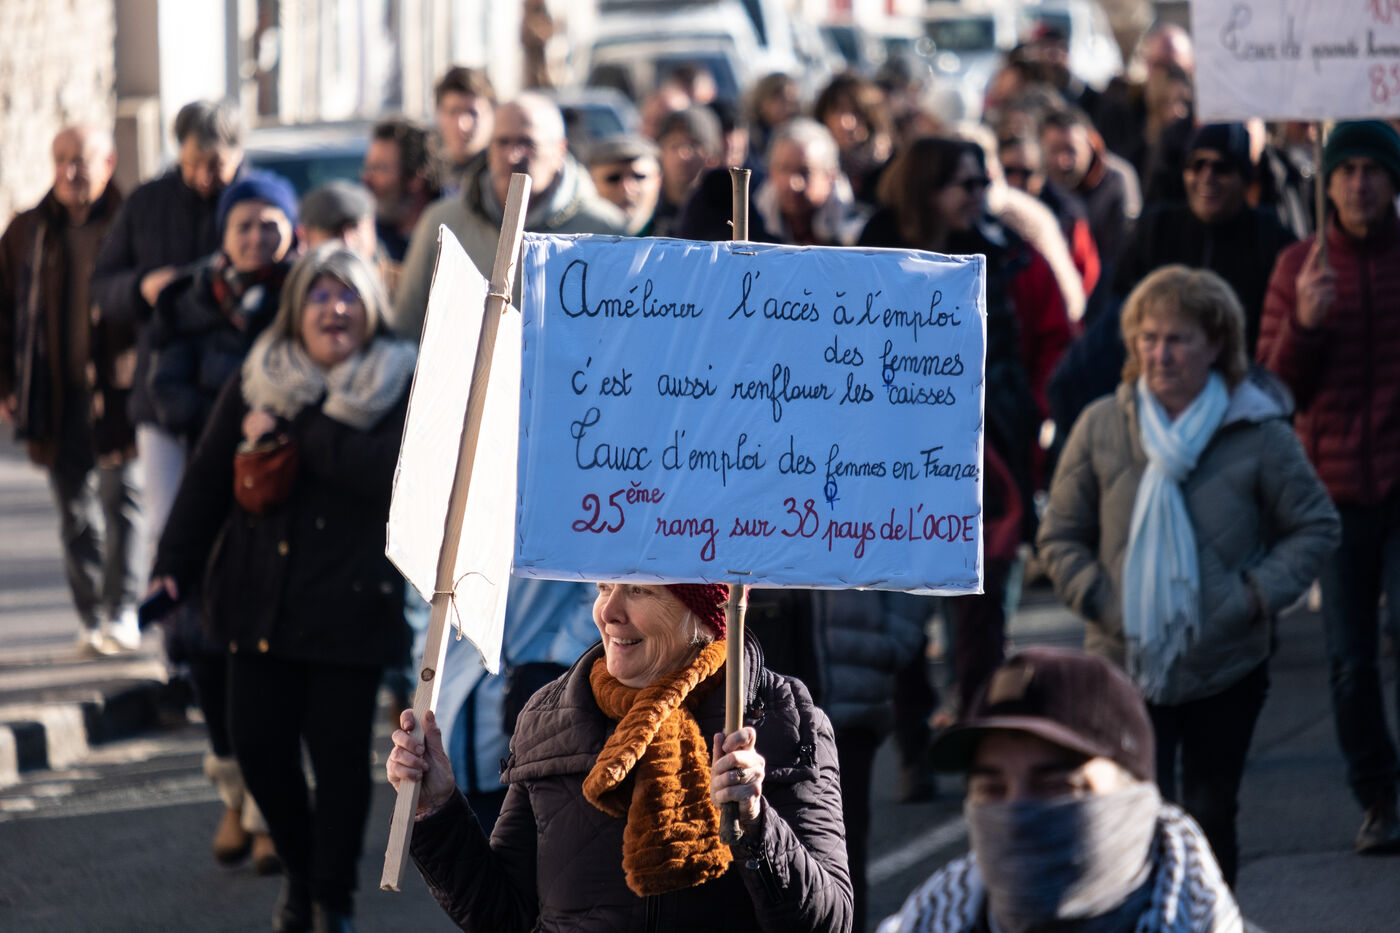 Améliorer l'accès à l'emploi
des femmes
c'est aussi renflouer les caisses
Taux d'emploi des femmes en France:
25ème rang sur 38 pays de L'OCDE
Taux de